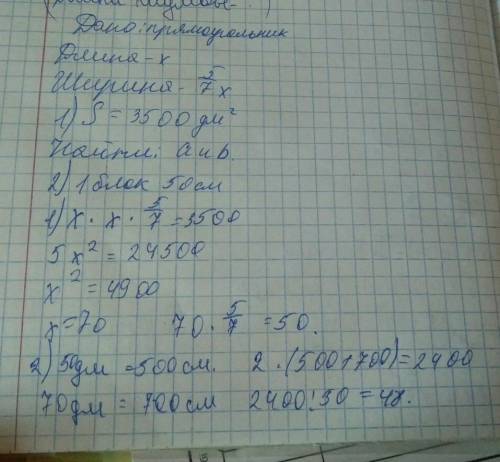 Дано: прямоугольник
Длина - x
Ширина - 5/7 x
1) S = 3500 дм²
Найти: a и b.
2) 1 блок 50 см
1) x · x · 5/7 = 3500
5x² = 24500
x² = 4900
x = 70 70 · 5/7 = 50.
2) 50дм = 500 см. 2 · (500 + 700) = 2400
70дм = 700 см 2400 : 50 = 48.